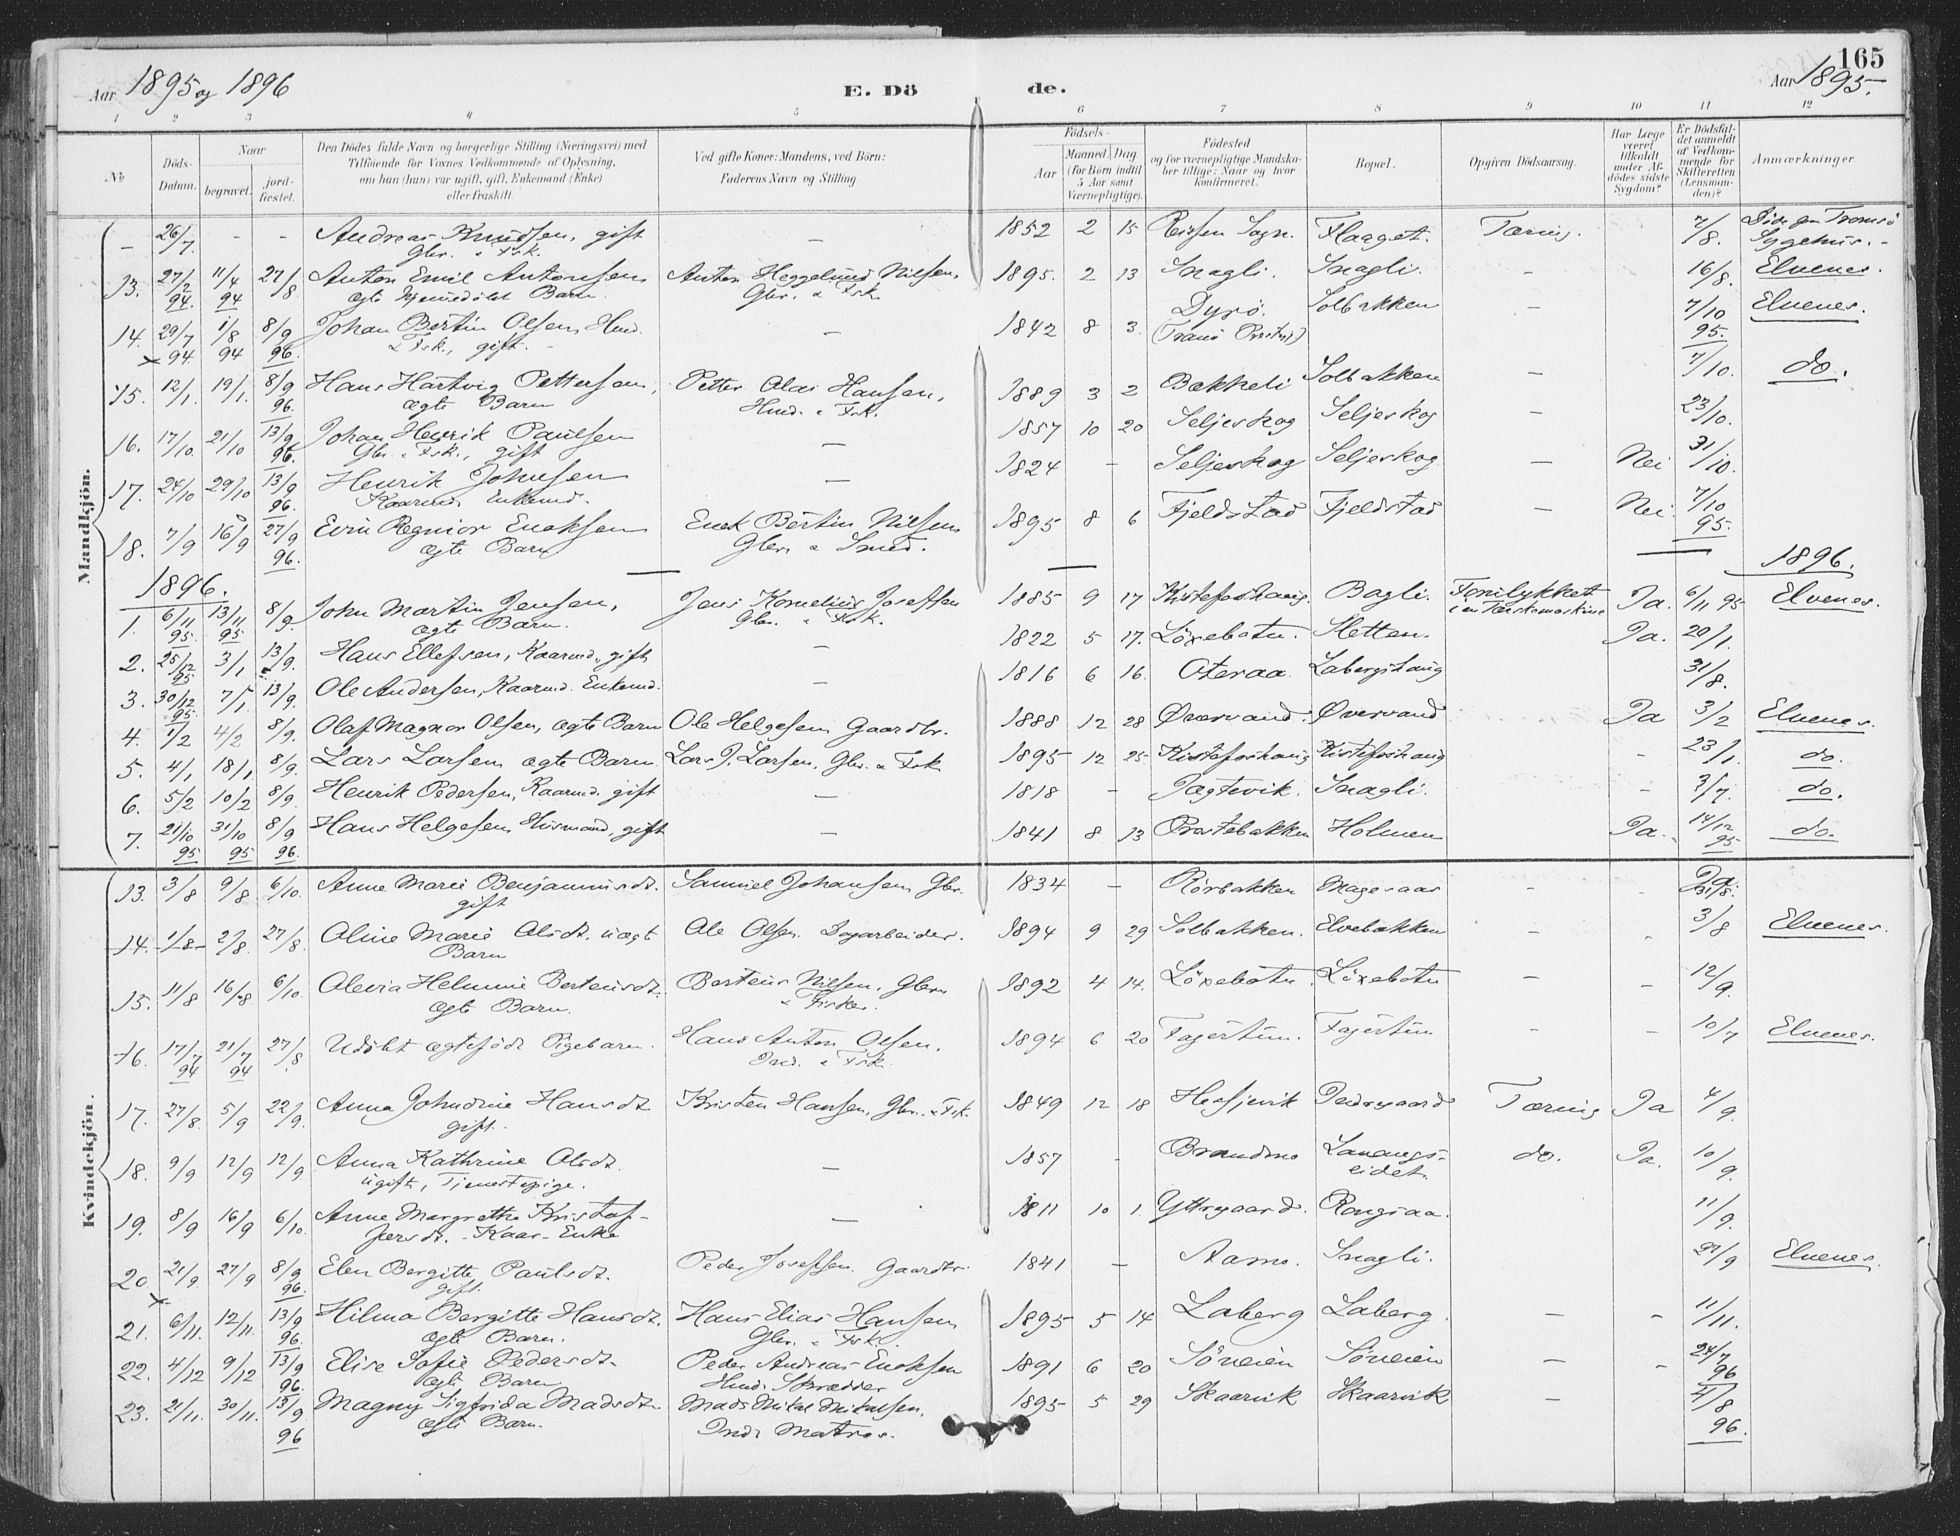 165
Aar 1895 og 1896
E. Dö
de.
Aar 1895.
1 2 3 4 5 6 7 8 9 10 11 12
No
Döds-Datum.
Naar
begravet.
jord-fæstet.
Den Dödes fulde Navn og borgerlige Stilling (Næringsvei) med
Tilföiende for Voxnes Vedkommende af Oplysning,
om han (hun) var ugift, gift, Enkemand (Enke)
eller fraskilt.
Ved gifte Koner: Mandens, ved Börn:
Faderens Navn og Stilling.
Födsels-
Aar
Maaned. Dag
(for Börn indtil
5 Aar samt
Værnepligtige).
Födested
og for værnepligtige Mandska-
ber tillige: Naar og hvor
konfirmeret.
Bopæl.
Opgiven Dödsaarsag.
Har Læge
været
tilkaldt
under Af-
dödes sidste
Sygdom?
Er Dödsfal-
det anmeldt
af Vedkom-
mende for
Skifteretten
(Lensman-
den)?
Anmærkninger.
Mandkjön.
- 26/7. - - Andreas Knudsen, gift - 1852 2 15 Sogn. Flaaget. Tæring. 7/8. Tromsø
Gbr. & Fsk. Sygehus.
13. 27/2 94. 11/4 94 27/8 Anton Emil Antonsen Anton Heggelund Nilsen, 1895. 2 13 Snagli. Snagli. - 16/8. Elvenes.
ægte hjemmedøbt Barn. Gbr. & Fsk.
14. 29/7 94. 1/8 94 8/9 96. Johan Bertin Olsen, Hmd. - 1842 8 3. Dyrø. Solbakken - 7/10 95. Elvenes.
& Fsk., gift. (Tranø Præstegj)
15. 12/1. 19/1. 8/9 96. Hans Hartvig Pettersen, Petter Olai Hansen, 1889 3 2 Bakkeli Solbakken - 7/10. do.
ægte Barn Hmd. & Fsk.
16. 17/10. 21/10 13/9 96. Johan Henrik Paulsen - 1857 10 20 Seljeskog Seljeskog - 23/10.
Gbr. & Fsk., gift
17. 24/10 29/10 13/9 96. Henrik Johnsen - 1824 - Seljeskog Seljeskog - Nei 31/10.
Kaarmd. Enkemd.
18. 7/9 16/9 27/9 96. Regnior Enoksen Enok Bertin Nilsen 1895 8 6 Fjeldstad Fjeldstad - Nei 7/10 95.
ægte Barn Gbr. & Smed.
1896. 1896.
1. 6/11 95. 13/11 95 8/9. John Martin Jensen, Jens Kornelius Josefsen 1885 9 17 Kistefoshaug. Bagli. Forulykket Ja. 6/11 95 Elvenes.
ægte Barn. Gbr. & Fsk. i en Tærskemaskine
2. 25/12 95 3/1 13/9. Hans Ellefsen, Kaarmd., gift - 1822 5 17. Løxebotn. Sletten. Ja. 29/1.
3. 30/12 95. 7/1 13/9. Ole Andersen, Kaarmd. Enkemd. - 1816 6 16. Oteraa. Labergshaug 31/8.
4. 1/2 4/2 8/9. Olaf Magnor Olsen, ægte Barn Ole Helgesen Gaardbr. 1888 12 28 Øvervand. Øvervand Ja 3/2 Elvenes.
5. 4/1 18/1 8/9. Lars Larsen ægte Barn. Lars J. Larsen, Gbr. & Fsk. 1895 12 25 Kistefoshaug Kistefoshaug - 23/1. do.
6. 5/2 10/2 8/9. Henrik Pedersen, Kaarmd. gift - 1818 - Jægtevik. Snagli. - 3/7. do.
7. 21/10 95 31/10 95 8/9 96. Hans Helgesen, Husmand, gift - 1841 8 13 Præstebakken Holmen Ja. 14/12 95 do.
Kvindekjön.
13. 3/8 9/8. 6/10. Anne Marie Benjaminsdt. Samuel Johansen, Gbr. 1834 - Rørbakken - - Ja 31/8.
gift
14. 1/8 2/8. 27/8. Oline Marie Olsdt. uægt Ole Olsen. Dagarbeider. 1894 9 29 Solbakken. Elvebakken - - 3/8 Elvenes.
Barn
15. 11/8 16/8. 6/10. Olevia Helmine Berteusdt. Berteus Nilsen, Gbr. 1892 4 14. Løxebotn Løxebotn - - 12/9.
ægte Barn. & Fisker.
16. 17/7 94 21/7 94 27/8. Udøbt ægtefødt Pigebarn. Hans Anton Olsen. 1894 6 20 Fagertun. Fagertun - - 10/7 Elvenes.
Ind. & Fsk.
17. 27/8. 5/9 22/9. Anna Johndine Hansdt. Kristen Hansen, Gbr. & Fsk. 1849 12 18 Hessjevik Indregaard Tæring Ja 4/9.
gift.
18. 9/9 12/9 12/9 Anna Kathrine Olsdt. - 1857 - Brandmo Lavangs-eidet. do. Ja. 10/9.
ugift, Tjenestepige.
19. 8/9 16/9 6/10. Anne Margrethe Kristof- - 1811 10 1. Yttregaard. Rongiaa. 11/9.
fersdt. - Kaar-Enke
20 21/9. 27/9 8/9 96. Elen Bergitte Paulsdt. Peder Josefsen Gaardbr. 1841 - Aamo. Snagli. 27/9 Elvenes.
gift.
21. 6/11. 12/11. 13/9 96. Hilma Bergitte Hansdt. Hans Elias Hansen 1895 5 14 Laberg Laberg. - - 11/11.
ægte Barn. Gbr. & Fsk.
22. 4/12 9/12 13/9 96. Elise Sofie Pedersdt. Peder Andreas Enoksen 1891 6 20 Søveien Søveien - - 24/7 96
ægte Barn Hmd. Skrædder
23. 21/11. 30/11. 13/9 96 Magny Sigfrida Madsdt. Mads Mikal Mikalsen, 1895 5 29 Skaarvik Skaarvik - 4/8 96.
ægte Barn. Ind. Matros.